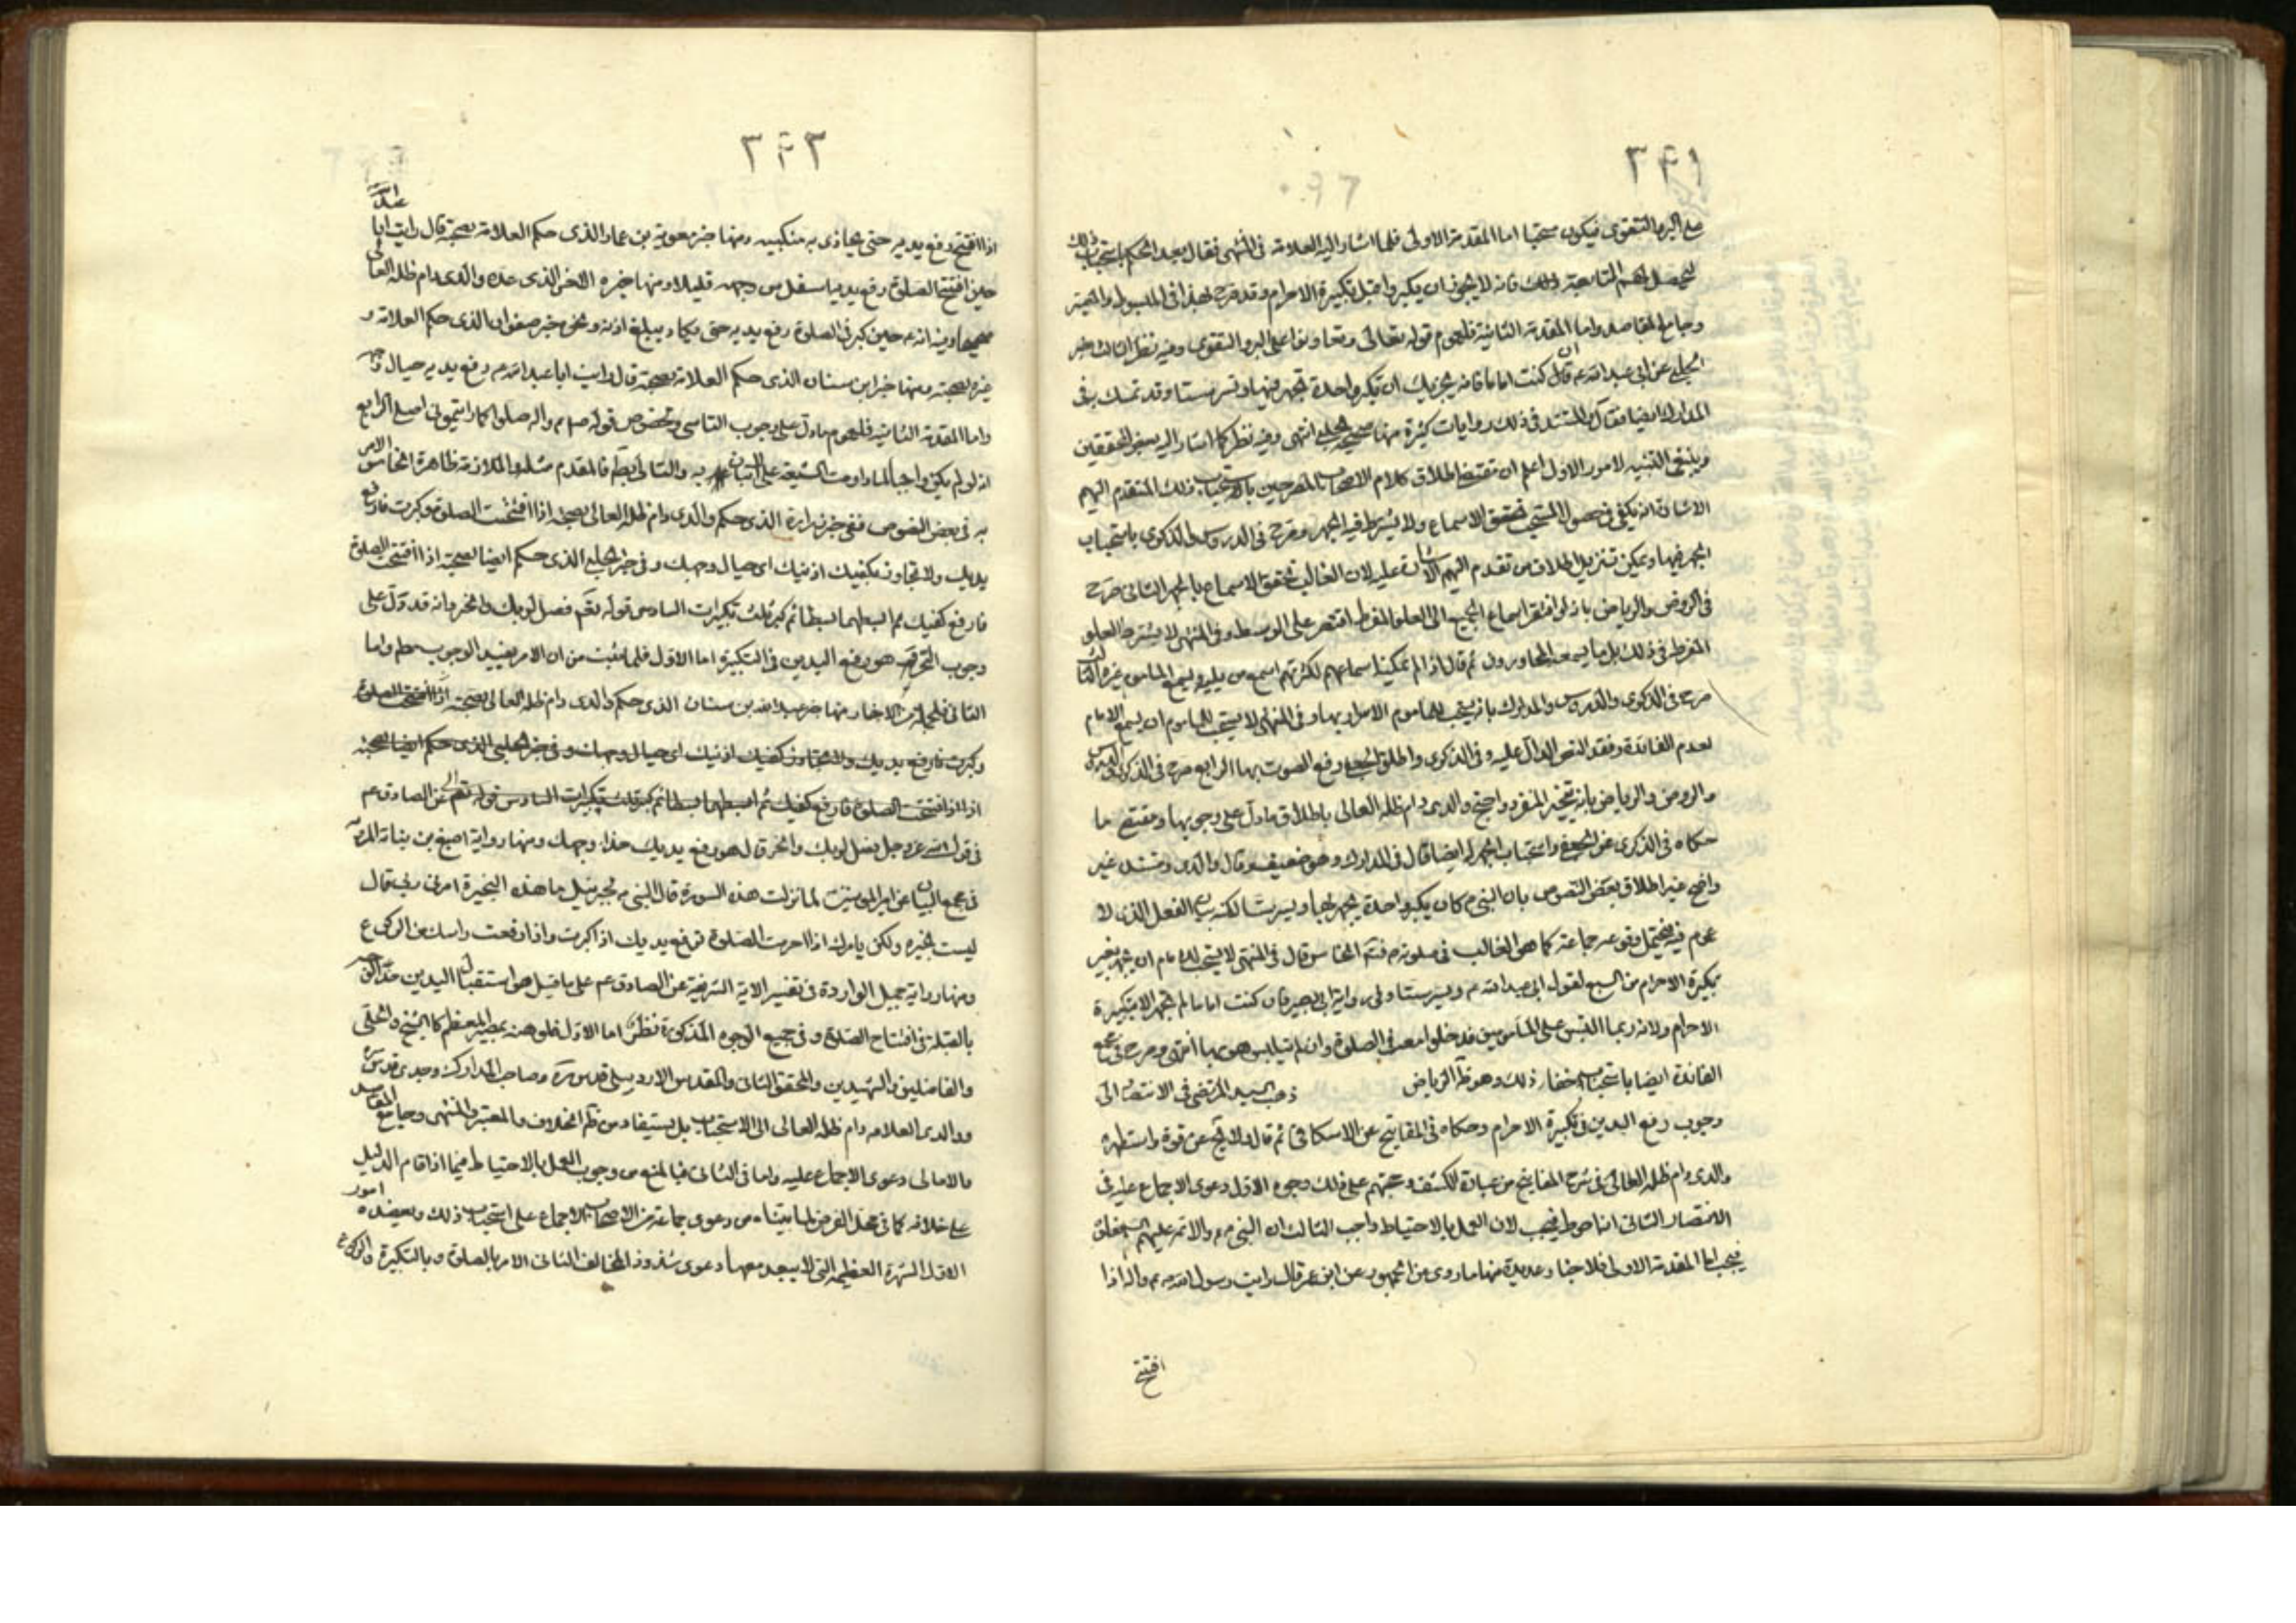 ٣۴١
على البر والتقوى فيكون مستحبا اما المقدمة الاولى فلما اشار اليه العلامة فى المنتهى فقال بعد الحكم باستحباب ذلك
ليحصل لهم المتابعة وذلك فانه لا يجوز ان يكبروا قبل تكبيرة الاحرام وقد صرح بهذا فى المبسوط والمعتبر
وجامع المقاصد واما المقدمة الثانية فلعموم قوله تعالى وتعاونوا على البر والتقوى وفيه نظر الثالث خبر
الحلبى عن ابى عبد الله ع قال ان كنت اماما فانه يجزيك ان تكبر واحدة تجهر فيها وتسر ستا وقد تمسك به فى
المدارك ايضا فقال المستند فى ذلك روايات كثيرة منها صحيحة الحلبى انتهى وفيه نظر كما اشار اليه بعض المحققين
وينبغى التنبيه لامور الاول اعلم ان مقتضى اطلاق كلام الاصحاب المصرحين باستحباب ذلك المتقدم اليهم
الاشارة انه يكفى فى حصول المستحب تحقق الاسماع ولا يشترط فيه الجهر وصرح فى الدروس والذكرى باستحباب
الجهر فيها ويمكن تنزيل اطلاق من تقدم اليهم الاشارة عليه لان الغالب تحقق الاسماع بالجهر الثانى صرح
فى الروض والرياض بانه لو افتقر اسماع الجميع الى العلو المفرط اقتصر على الوسط وفى المنتهى لا يشترط العلو
المفرط فى ذلك بل ما يسمعه المجاورون ثم قال اذا لم يمكن اسماعهم لكثرتهم اسمع من يليه ويسمع المأموم غيره الثالث
صرح فى الذكرى والدروس والمدارك بانه يستحب للماموم الاسرار بها وفى المنتهى لا يستحب للماموم ان يسمع الامام
لعدم الفائدة وفقد النص الدال عليه وفى الذكرى واطلق الجعفى رفع الصوت بها الرابع صرح فى الذكرى والدروس
والروض والرياض بانه يتخير المنفرد واحتج والدى دام ظله العالى باطلاق ما دل على وجوبها ومقتضى ما
حكاه فى الذكرى عن الجعفى واستحباب الجهر له ايضا قال فى المدارك وهو ضعيف وقال والدى ومستنده غير
واضح غير اطلاق بعض النصوص بان النبى ص كان يكبر واحدة يجهر بها ويسر ستا لكنه بيان الفعل الذى لا
عموم فيه فيحتمل وقوعه جماعة كما هو الغالب فى صلوته ص فتم الخامس قال فى المنتهى لا يستحب للامام ان يجهر بغير
تكبيرة الاحرام من السبع لقول ابى عبد الله ع ويسر ستا وفى رواية ابى بصير فان كنت اماما لم تجهر الا بتكبيرة
الاحرام ولانه ربما التبس على المأمومين فدخلوا معه فى الصلوة وان لم يتلبس هو بها انتهى وصرح فى مجمع
الفائدة ايضا باستحباب اخفاء ذلك وهو ظ الرياض ذهب السيد المرتضى فى الانتصار الى
وجوب رفع اليدين فى تكبيرة الاحرام وحكاه فى المفاتيح عن الاسكافى ثم قال ولا يخ عن قوة واستظهره
والدى دام ظله العالى فى شرح المفاتيح من عبارة الكشف وحجتهم على ذلك وجوه الاول دعوى الاجماع عليه فى
الانتصار الثانى انه احوط فيجب لان العمل بالاحتياط واجب الثالث ان النبى ص والائمة عليهم السلم فعلوه
فيجب اما المقدمة الاولى فلاخبار عديدة منها ما روى من الجمهور عن ابن عمر قال رايت رسول الله ص اذا
افتتح
٣۴٢
اذا افتتح رفع يديه حتى يحاذى به منكبيه ومنها خبر معوية بن عمار الذى حكم العلامة بصحته قال رايت ابا عبد الله
حين افتتح الصلوة رفع يديه اسفل من وجهه قليلا ومنها خبره الاخر الذى عده والدى دام ظله العالى
صحيحا وفيه انه ع حين كبر فى الصلوة رفع يديه حتى يكاد يبلغ اذنه ونحوه خبر صفوان الذى حكم العلامة و
غيره بصحته ومنها خبر ابن سنان الذى حكم العلامة بصحته قال رايت ابا عبد الله ع رفع يديه حيال وجهه
واما المقدمة الثانية فلعموم ما دل على وجوب التاسى وخصوص قوله ص صلوا كما رايتمونى اصلى الرابع
انه لو لم يكن واجبا لما داومت الشيعة على الاتيان به والتالى بط فالمقدم مثله والملازمة ظاهرة الخامس الامر
به فى بعض النصوص ففى خبر زرارة الذى حكم والدى دام ظله العالى بصحته اذا افتتحت الصلوة وكبرت فارفع
يديك ولا تجاوز بكفيك اذنيك اى حيال وجهك وفى خبر الحلبى الذى حكم ايضا بصحته اذا افتتحت الصلوة
فارفع كفيك ثم ابسطهما بسطا ثم كبر ثلث تكبيرات السادس قوله تعم فصل لربك وانحر فانه قد دل على
وجوب النحر وهو رفع اليدين فى التكبيرة اما الاول فلما ثبت من ان الامر يفيد الوجوب مطم واما
الثانى فلجملة من الاخبار منها خبر عبد الله بن سنان الذى حكم والدى دام ظله العالى بصحته اذا افتتحت الصلوة
وكبرت فارفع يديك ولا تجاوز بكفيك اذنيك اى حيال وجهك وفى خبر الحلبى الذى حكم ايضا بصحته
اذا افتتحت الصلوة فارفع كفيك ثم ابسطهما بسطا ثم كبر ثلث تكبيرات السادس قوله تعم عن الصادق ع
فى قول الله عز وجل فصل لربك وانحر قال هو رفع يديك حذاء وجهك ومنها رواية اصبغ بن نباتة المروية
فى مجمع البيان عن امير المؤمنين لما نزلت هذه السورة قال النبى ص لجبرئيل ما هذه النحيرة امرنى ربى قال
ليست بنحيرة ولكن يامرك اذا احرمت الصلوة ترفع يديك اذا كبرت واذا رفعت راسك من الركوع
ومنها رواية جميل الواردة فى تفسير الاية الشريفة عن الصادق ع على ما قيل هو استقبال اليدين حذاء الوجه
بالقبلة فى افتتاح الصلوة وفى جميع الوجوه المذكورة نظر اما الاول فلوهنه بمصير المعظم كالشيخ والحلى
والفاضلين والشهيدين والمحقق الثانى والمقدس الاردبيلى قدس سره وصاحب المدارك وجدى قدس سره
ووالدى العلامه دام ظله العالى الى الاستحباب بل يستفاد من ظم الخلاف والمعتبر والمنتهى وجامع المقاصد
والامالى دعوى الاجماع عليه واما فى الثانى فبالمنع من وجوب العمل بالاحتياط فيما اذا قام الدليل
على خلافه كما فى محل الفرض لما بيناه من دعوى جماعة من الاصحاب الاجماع على استحباب ذلك ويعضده امور
الاول الشهرة العظيمة التى لا يبعد معها دعوى شذوذ المخالف الثانى الامر بالصلوة وبالتكبيرة والركوع